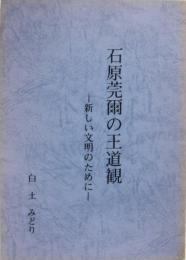 石原莞爾の王道観
―新しい文明のために―
白土 みどり